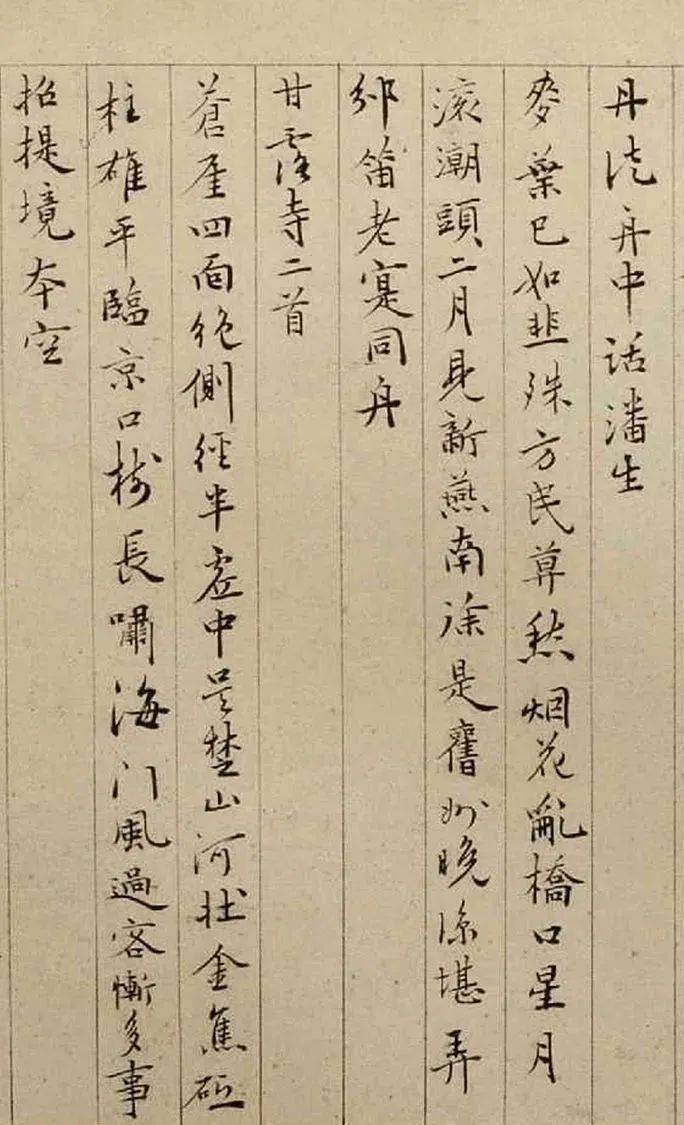 丹徒舟中話潘生
麥葉已如韭殊方民愁烟花亂橋口星月
滚潮頭二月見新燕南徐是舊州晚涼堪弄
笛老寔同舟
甘露寺二首
蒼崖四面絶側徑半虛中吳楚山河壯金焦砥
柱雄平臨京口樹長嘯海門風過客慚多事
招提境本空